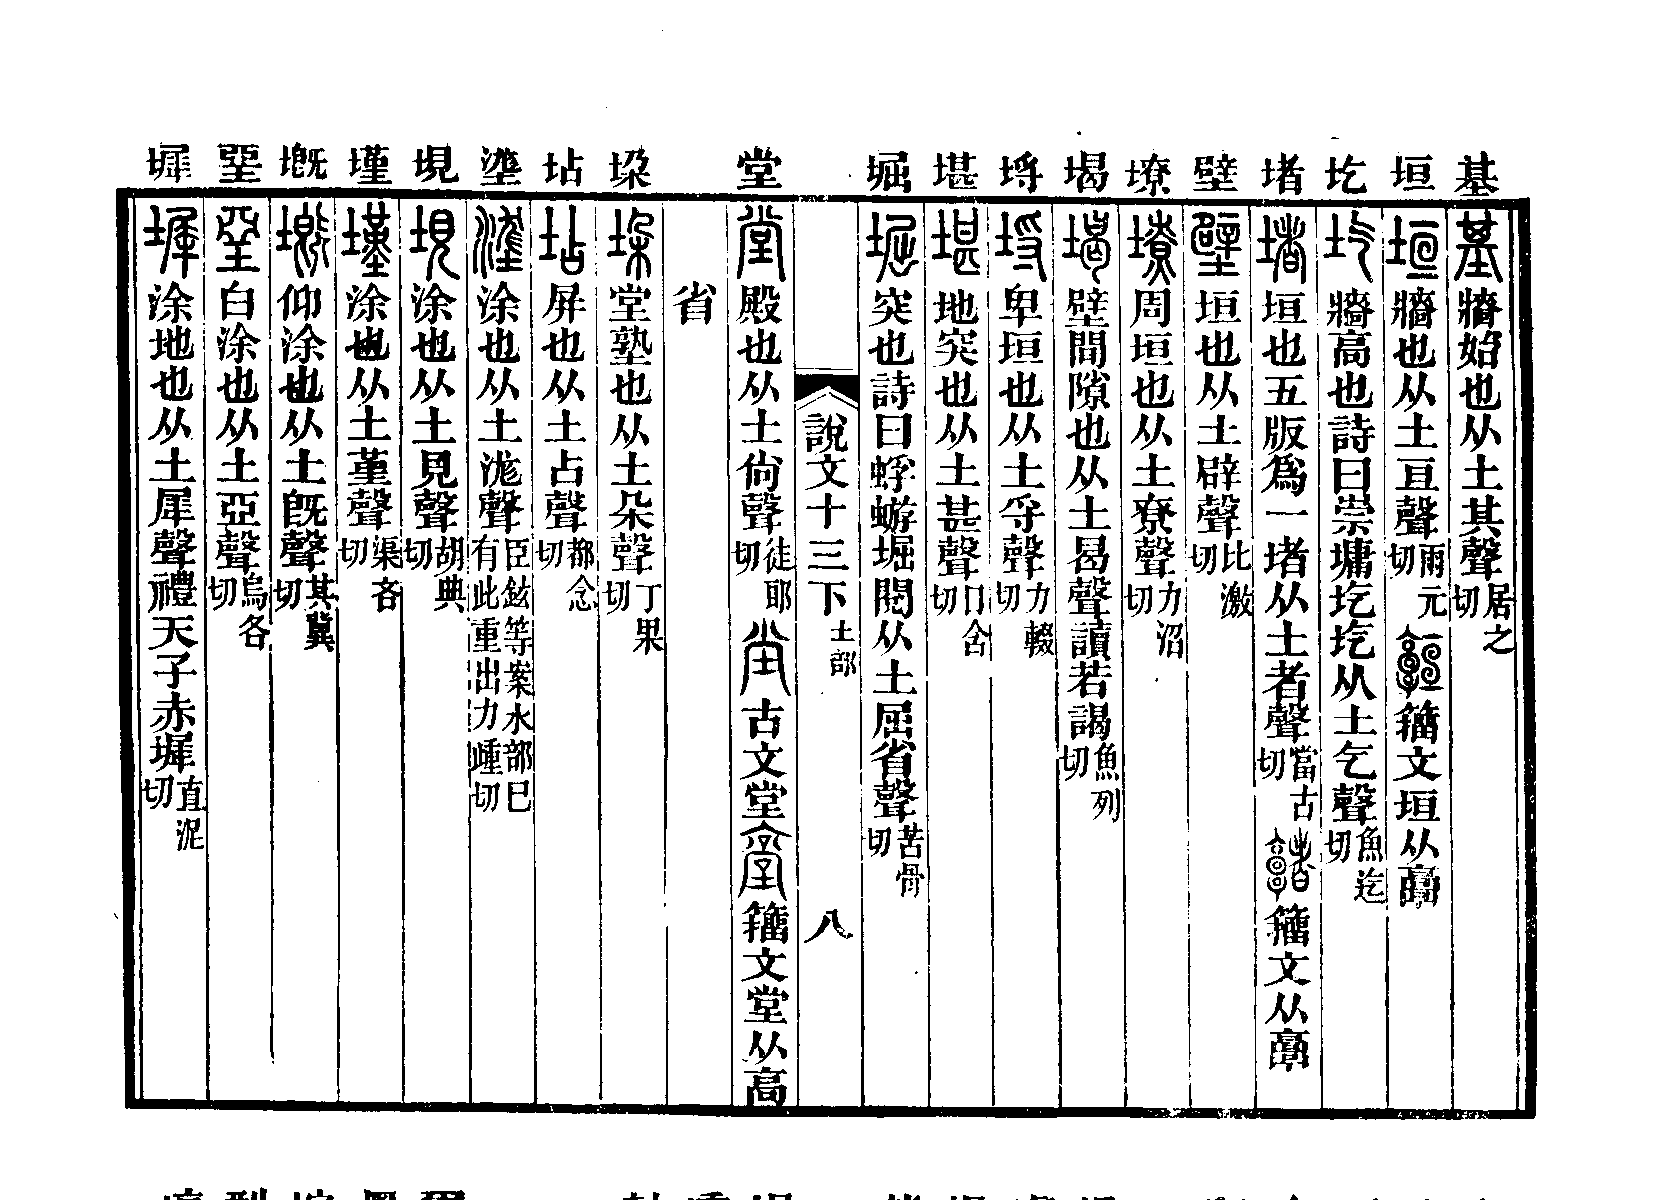 基 垣 圪 堵 壁 墝 堨 埒 堪 堀 堂 垛 坫 𡒄 垷 墐 塈 堊 墀
基牆始也从土其聲居之切
垣牆也从土亘聲雨元切 籒文垣从𩫖
圪牆高也詩曰崇墉圪圪从土乞聲魚迄切
堵垣也五版爲一堵从土者聲當古切 籒文从𩫖
壁垣也从土辟聲比激切
墝周垣也从土尞聲力沼切
堨壁間隙也从土曷聲讀若謁魚列切
埒卑垣也从土寽聲力輟切
堪地突也从土甚聲口含切
堀突也詩曰蜉蝣堀閱从土屈省聲苦骨切
說文十三下 土部 八
堂殿也从土尙聲徒郎切 古文堂 籒文堂从高
省
垛堂塾也从土朵聲丁果切
坫屏也从土占聲都念切
涂也从土浝聲臣鉉等案水部已有此重出力歱切
垷涂也从土見聲胡典切
墐涂也从土堇聲渠吝切
塈仰涂也从土旣聲其冀切
堊白涂也从土亞聲烏各切
墀涂地也从土犀聲禮天子赤墀直泥切